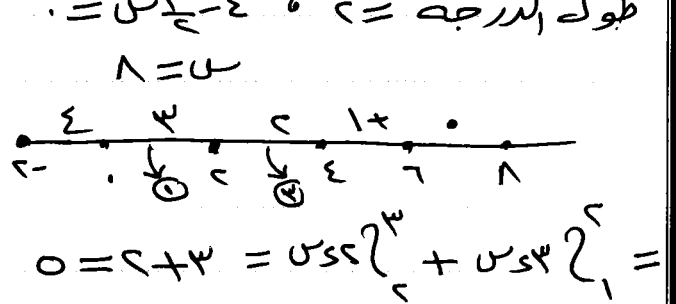 طول الدرجه = ٢ ، ٤ - ١/٢ س = ٠
س = ٨
٤ ٣ ٢ +١ ٠
-٢ ٠ ① ٢ ③ ٤ ٦ ٨
= ∫₁² ٣ ءس + ∫₂³ ٢ ءس = ٣ + ٢ = ٥